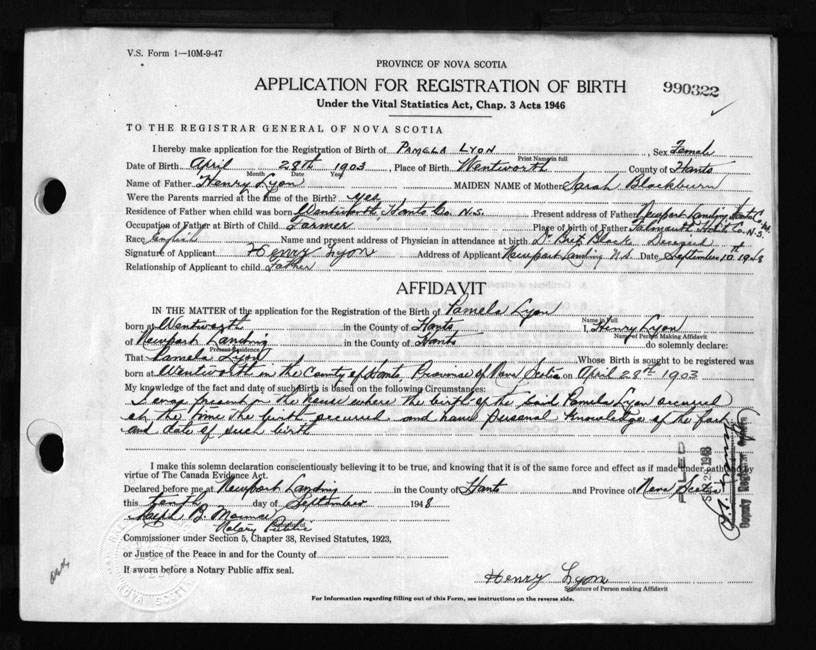 V.S. Form 1—10M-9-47
PROVINCE OF NOVA SCOTIA
APPLICATION FOR REGISTRATION OF BIRTH
990322
Under the Vital Statistics Act, Chap. 3 Acts 1946
TO THE REGISTRAR GENERAL OF NOVA SCOTIA
I hereby make application for the Registration of Birth of PAMELA LYON, Sex Female
Print Name in full
Date of Birth April 28th 1903, Place of Birth Wentworth County of Hants
Month Date Year
Name of Father Henry Lyon MAIDEN NAME of Mother Sarah Blackburn
Were the Parents married at the time of the Birth? yes
Residence of Father when child was born Wentworth Hants Co. N.S. Present address of Father Newport Landing Hants Co
Occupation of Father at Birth of Child Farmer Place of Birth of Father Falmouth Hants Co. N.S.
Race English Name and present address of Physician in attendance at birth Dr Black Deceased
Signature of Applicant Henry Lyon Address of Applicant Newport Landing N.S. Date September 10th 1948
Relationship of Applicant to child Father
AFFIDAVIT
IN THE MATTER of the application for the Registration of the Birth of Pamela Lyon
Name in Full
born at Wentworth in the County of Hants I, Henry Lyon
Name of Person Making Affidavit
of Newport Landing in the County of Hants do solemnly declare:
Present Residence
That Pamela Lyon Whose Birth is sought to be registered was
born at Wentworth in the County of Hants, Province of Nova Scotia on April 28th 1903
My knowledge of the fact and date of such Birth is based on the following Circumstances:
I was present in the house where the birth of the said Pamela Lyon occurred
at the time the birth occurred and have personal knowledge of the fact
and date of such birth
I make this solemn declaration conscientiously believing it to be true, and knowing that it is of the same force and effect as if made under oath and by
virtue of The Canada Evidence Act.
Declared before me at Newport Landing in the County of Hants and Province of Nova Scotia
this Tenth day of September 1948
Ralph B.
Notary Public
Commissioner under Section 5, Chapter 38, Revised Statutes, 1923,
or Justice of the Peace in and for the County of
If sworn before a Notary Public affix seal.
Henry Lyon
Signature of Person making Affidavit
For Information regarding filling out of this Form, see instructions on the reverse side.
FILED
1948
Deputy Registrar General
NOVA SCOTIA